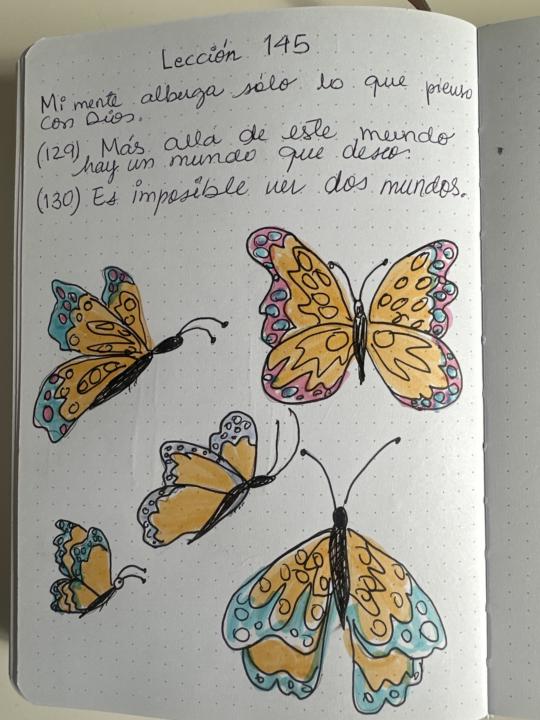 Lección 145
Mi mente alberga sólo lo que pienso
con Dios.
(129) Más allá de este mundo
hay un mundo que deseo.
(130) Es imposible ver dos mundos.